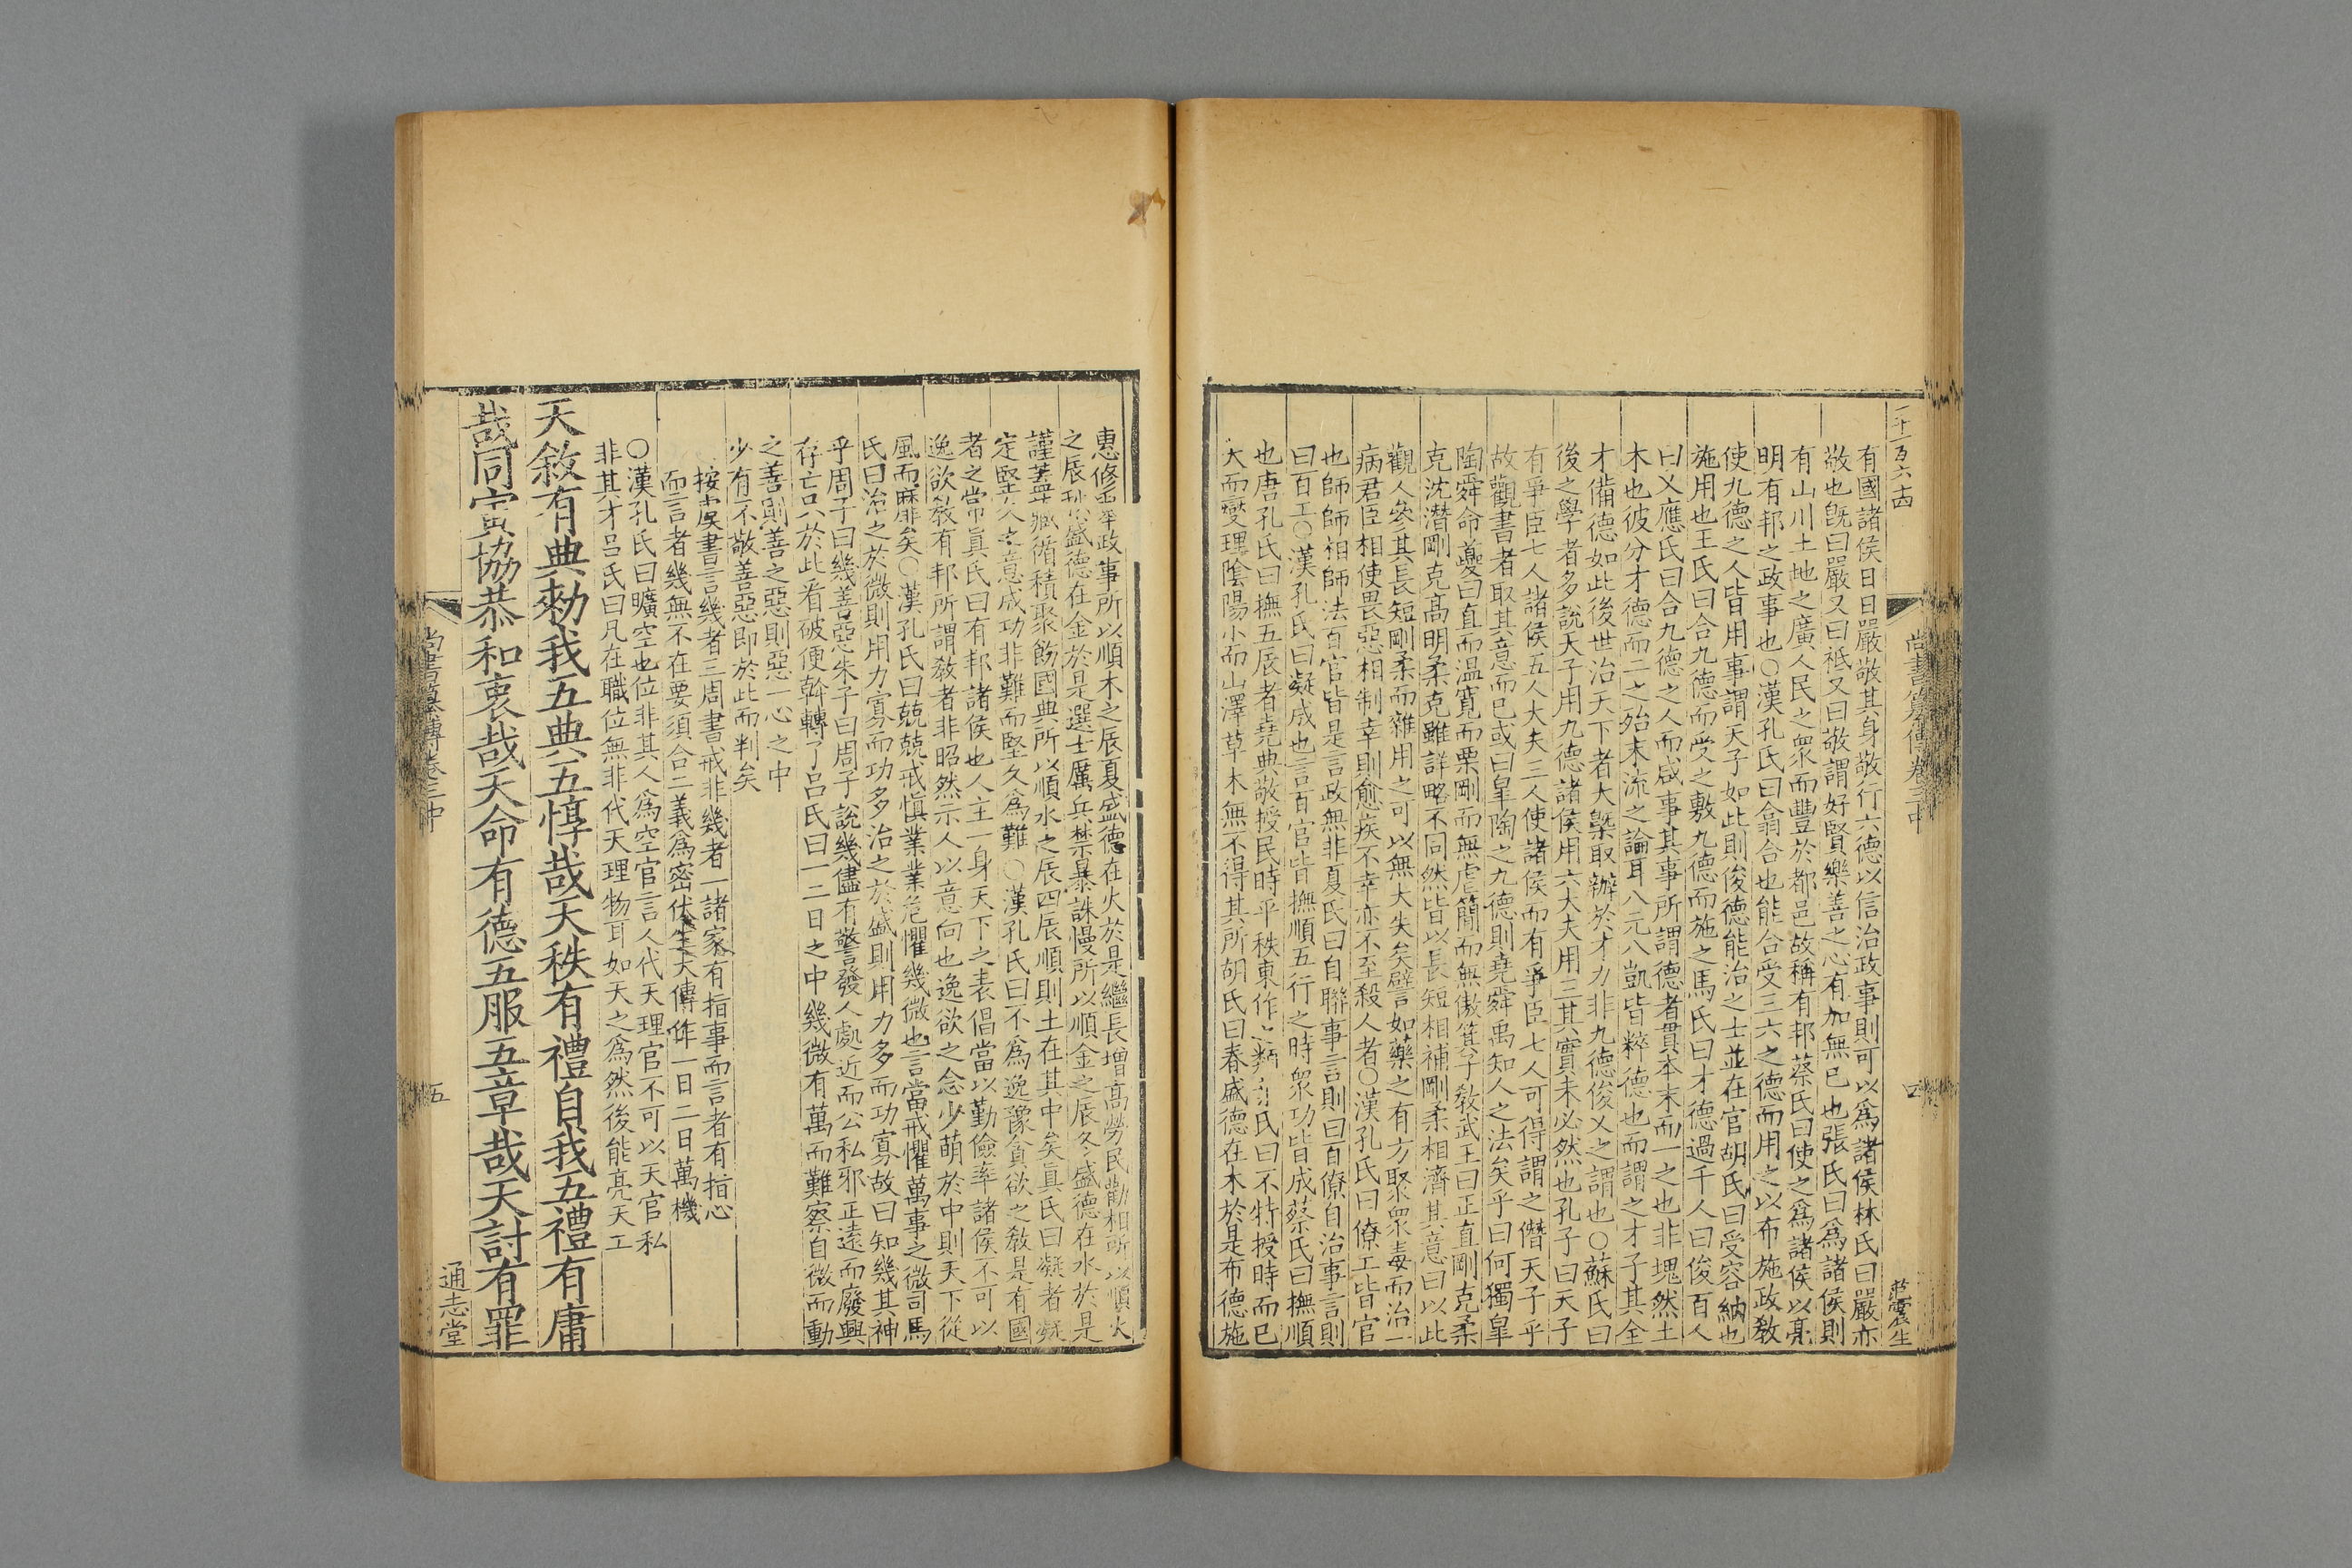 有國諸侯日日嚴敬其身敬行六德以信治政事則可以爲諸侯林氏曰嚴亦
敬也旣曰嚴又曰祗又曰敬謂好賢樂善之心有加無已也張氏曰爲諸侯則
有山川土地之廣人民之衆而豐於都邑故稱有邦蔡氏曰使之爲諸侯以亮
明有邦之政事也○漢孔氏曰翕合也能合受三六之德而用之以布施政教
使九德之人皆用事謂天子如此則俊德能治之士並在官胡氏曰受容納也
施用也王氏曰合九德而受之敷九德而施之馬氏曰才德過千人曰俊百人
曰乂應氏曰合九德之人而咸事其事所謂德者貫本末而一之也非塊然土
木也彼分才德而二之殆末流之論耳八元八凱皆粹德也而謂之才子其全
才備德如此後世治天下者大槩取辦於才力非九德俊乂之謂也○蘇氏曰
後之學者多說天子用九德諸侯用六大夫用三其實未必然也孔子曰天子
有爭臣七人諸侯五人大夫三人使諸侯而有爭臣七人可得謂之僭天子乎
故觀書者取其意而已或曰皐陶之九德則堯舜禹知人之法矣乎曰何獨皐
陶舜命夔曰直而温寬而栗剛而無虐簡而無傲箕子敎武王曰正直剛克柔
克沈潛剛克高明柔克雖詳略不同然皆以長短相補剛柔相濟其意曰以此
觀人參其長短剛柔而雜用之可以無大失矣譬如藥之有方聚衆毒而治一
病君臣相使畏惡相制幸則愈疾不幸亦不至殺人者○漢孔氏曰僚工皆官
也師師相師法百官皆是言政無非夏氏曰自聯事言則曰百僚自治事言則
曰百工○漢孔氏曰凝成也言百官皆撫順五行之時衆功皆成蔡氏曰撫順
也唐孔氏曰撫五辰者堯典敬授民時平秩東作之類是氏曰不特授時而已
大而燮理陰陽小而山澤草木無不得其所胡氏曰春盛德在木於是布德施
尚書纂傳卷三中
四
惠修 政事所以順木之辰夏盛德在火於是繼長增高勞民勸相所以順火
之辰秋盛德在金於是選士厲兵禁暴誅慢所以順金之辰冬盛德在水於是
謹蓋藏循積聚飭國典所以順水之辰四辰順則土在其中矣眞氏曰凝者凝
定堅久之意成功非難而堅久爲難○漢孔氏曰不爲逸豫貪欲之敎是有國
者之常眞氏曰有邦諸侯也人主一身天下之表倡當以勤儉率諸侯不可以
逸欲敎有邦所謂敎者非昭然示人以意向也逸欲之念少萌於中則天下從
風而靡矣○漢孔氏曰兢兢戒愼業業危懼幾微也言當戒懼萬事之微司馬
氏曰治之於微則用力寡而功多治之於盛則用力多而功寡故曰知幾其神
乎周子曰幾善惡朱子曰周子說幾儘有警發人處近而公私邪正遠而廢興
存亡只於此看破便斡轉了呂氏曰一二日之中幾微有萬而難察自微而動
之善則善之惡則惡一心之中
少有不敬善惡即於此而判矣
按虞書言幾者三周書戒非幾者一諸家有指事而言者有指心
而言者幾無不在要須合二義爲密伏生大傳作一日二日萬機
○漢孔氏曰曠空也位非其人爲空官言人代天理官不可以天官私
非其才呂氏曰凡在職位無非代天理物耳如天之爲然後能亮天工
天敘有典勑我五典五惇哉天秩有禮自我五禮有庸
哉同寅協恭和衷哉天命有德五服五章哉天討有罪
尚書纂傳卷三中
五
通志堂